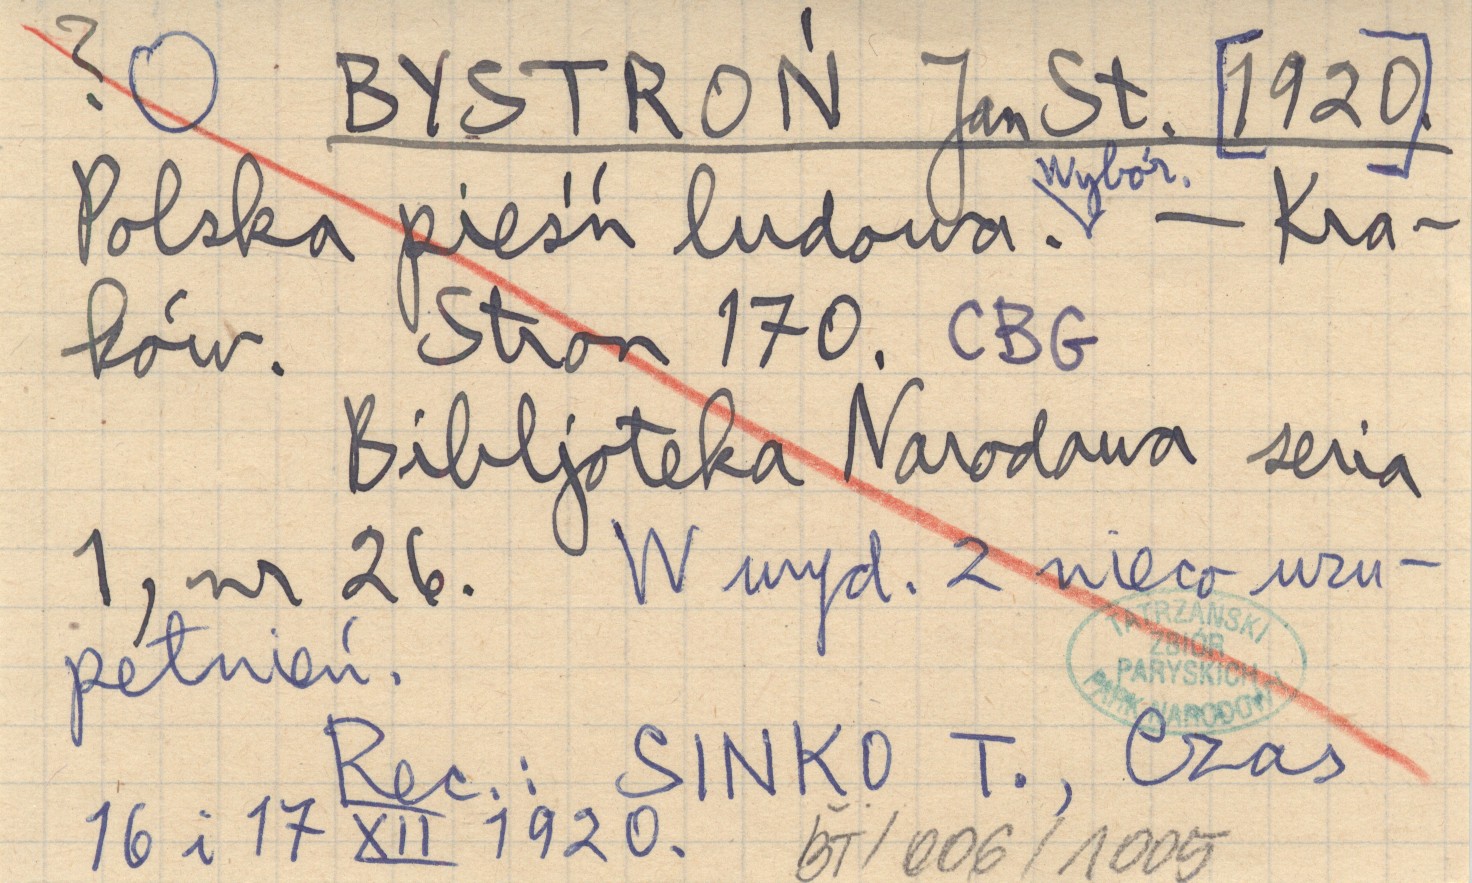 ? BYSTROŃ Jan St. [1920].
Wybór.
Polska pieśń ludowa. — Kra-
ków. Stron 170. CBG
Bibljoteka Narodowa seria
1, nr 26. W wyd. 2 nieco uzu-
pełnień.
TATRZAŃSKI
ZBIÓR
PARYSKICH
PARK NARODOWY
Rec.: SINKO T., Czas
16 i 17 XII 1920.
BT/006/1005